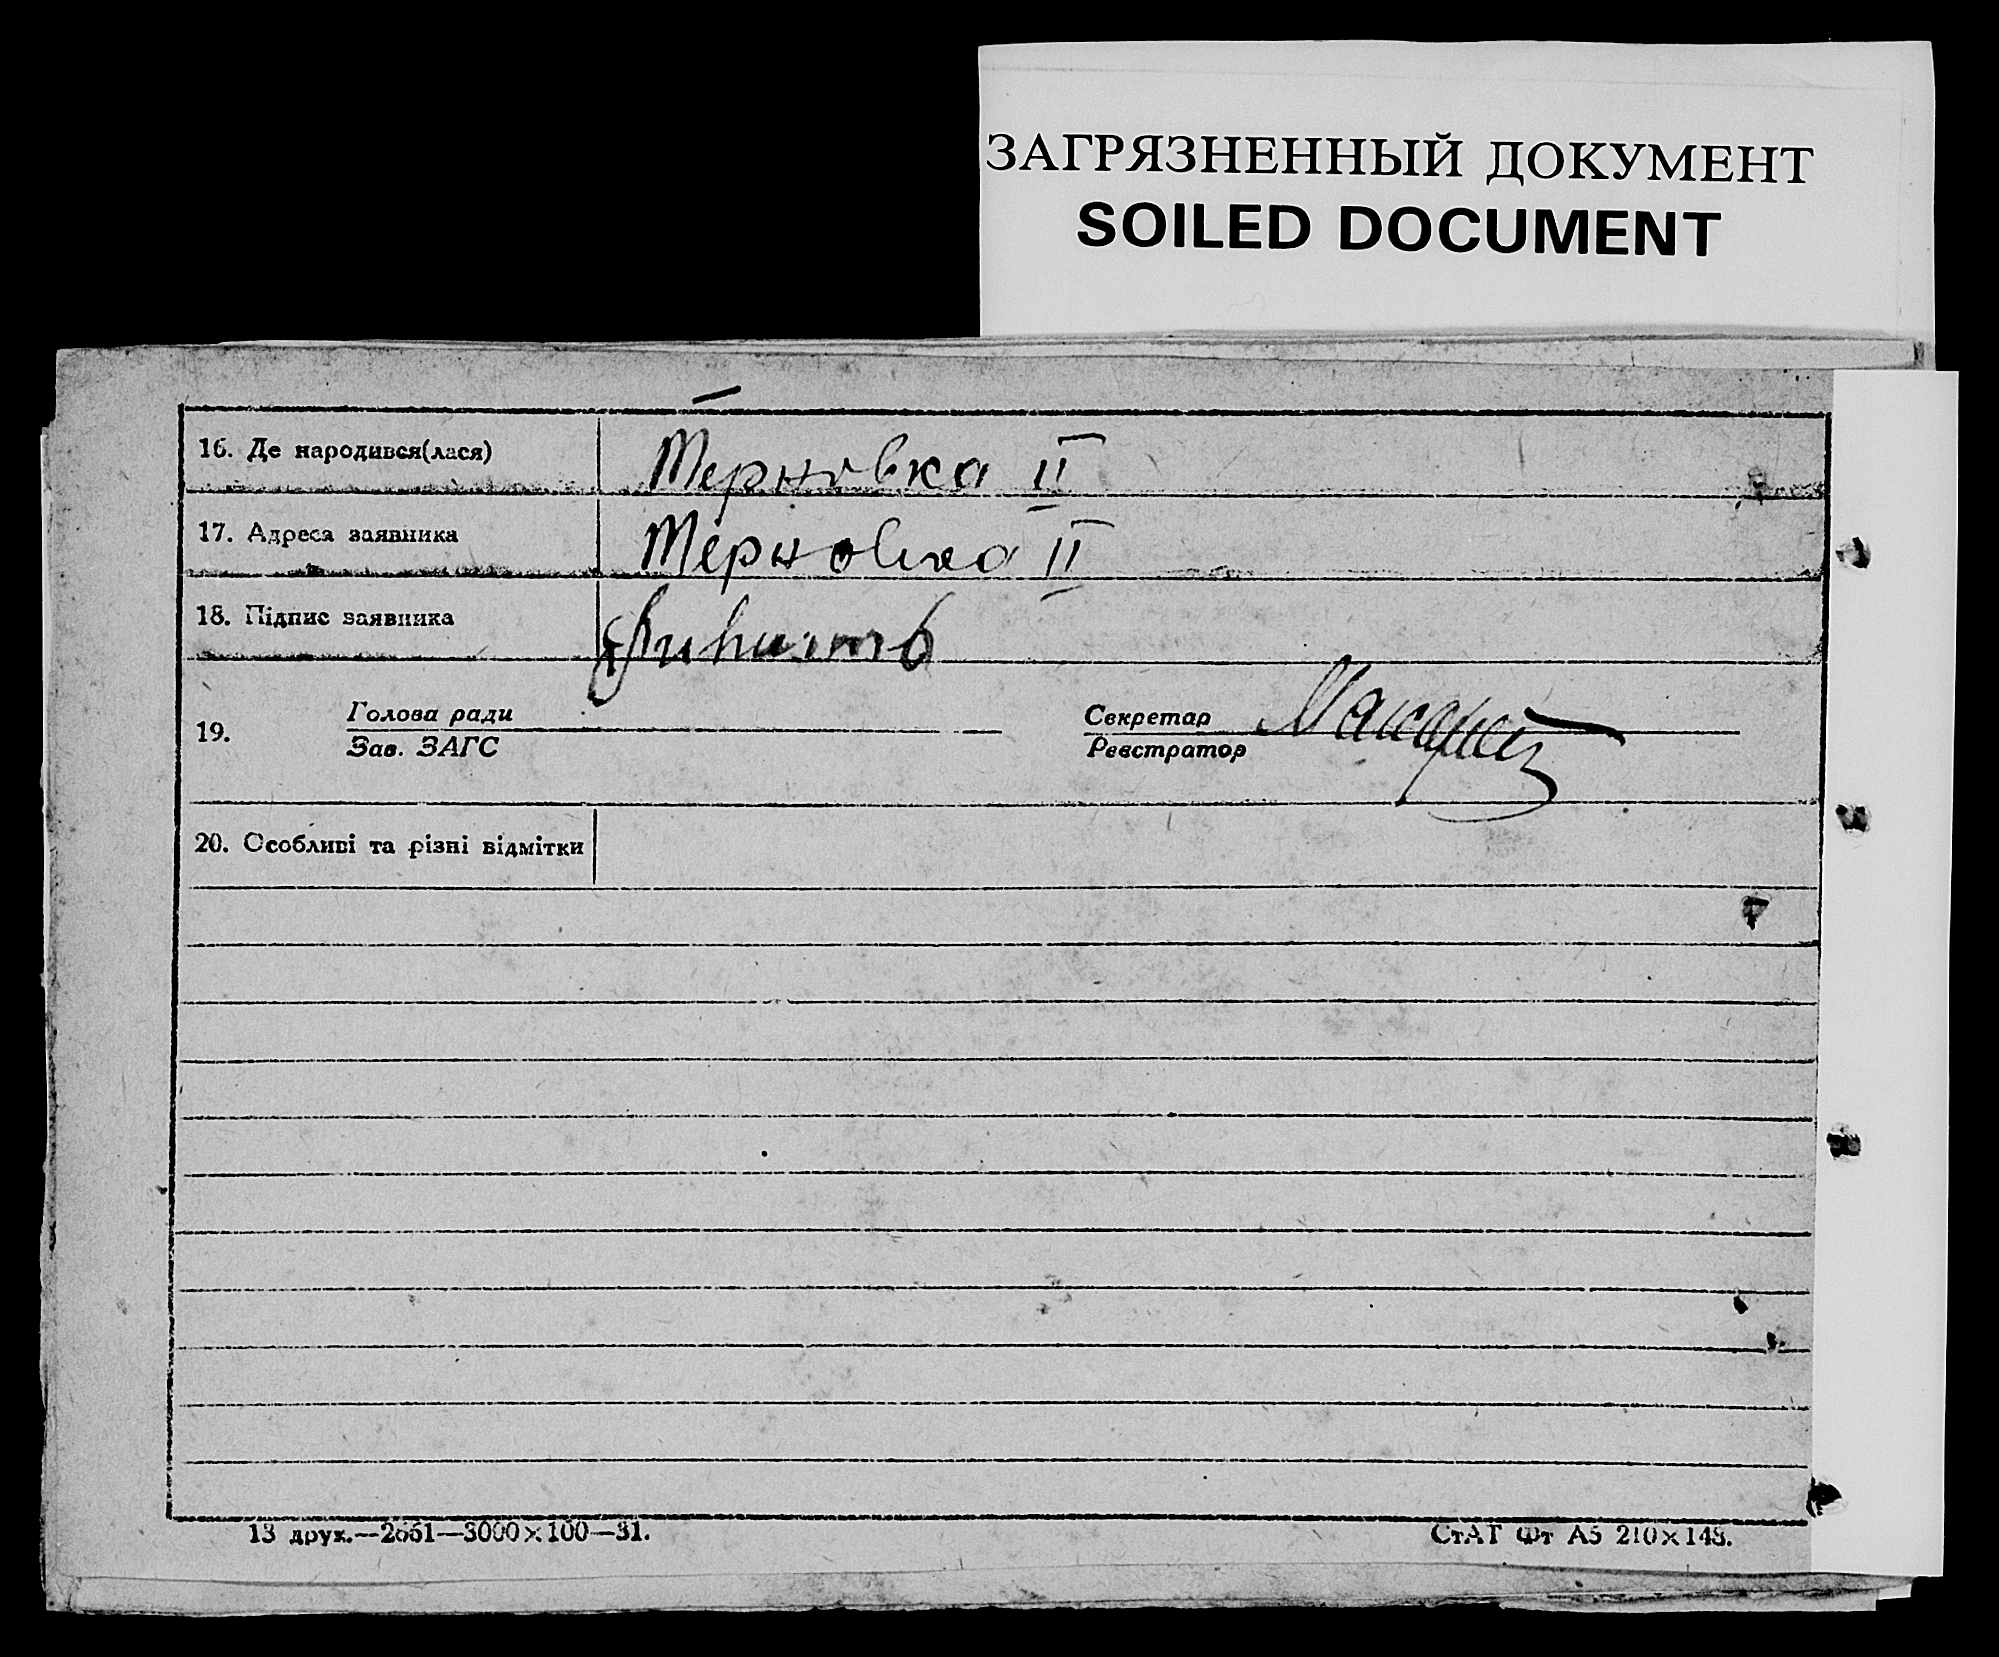 ЗАГРЯЗНЕННЫЙ ДОКУМЕНТ
SOILED DOCUMENT
16. Де народився(лася) Терновка II
17. Адреса заявника Терновка II
18. Підпис заявника
19. Голова ради Секретар
Зав. ЗАГС Реєстратор
20. Особливі та різні відмітки
13 друк.—2661—3000×100—31. СтАТ Фт А5 210×148.